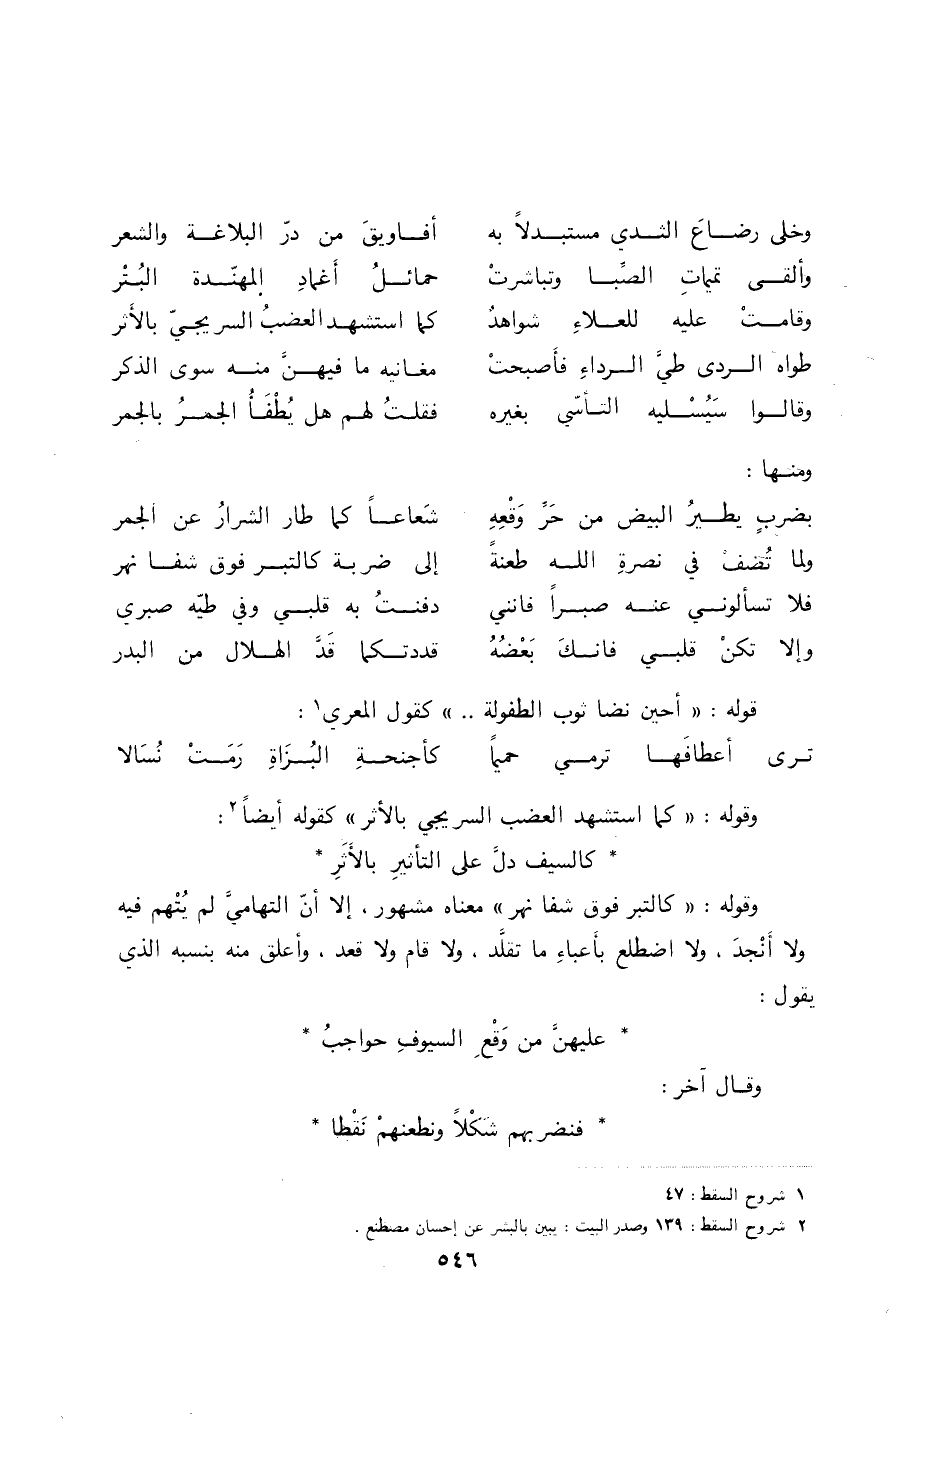 وخلى رضاعَ الثدي مستبدلاً به أفاويقَ من درّ البلاغة والشعر
وألقى تميماتِ الصِّبا وتباشرتْ حمائلُ أغمادِ المهنّدة البُتْر
وقامتْ عليه للعلاءِ شواهدُ كما استشهد العضبُ السريجيّ بالأثر
طواه الردى طيَّ الرداءِ فأصبحتْ مغانيه ما فيهنَّ منه سوى الذكر
وقالوا سَيُسْليه التأسّي بغيره فقلتُ لهم هل يُطْفَأُ الجمرُ بالجمر
ومنها :
بضربٍ يطيرُ البيض من حَرَّ وَقْعِهِ شَعاعاً كما طار الشرارُ عن الجمر
ولما تُضفْ في نصرةِ الله طعنةً إلى ضربة كالتبر فوق شفا نهر
فلا تسألوني عنه صبراً فانني دفنتُ به قلبي وفي طيّه صبري
وإلا تكنْ قلبي فانكَ بَعْضُهُ قددتكما قَدَّ الهلال من البدر
قوله : « أحين نضا ثوب الطفولة .. » كقول المعري١ :
ترى أعطافَها ترمي حميماً كأجنحةِ البُزَاةِ رَمَتْ نُسَالا
وقوله : « كما استشهد العضب السريجي بالأثر » كقوله أيضاً٢ :
* كالسيف دلَّ على التأثيرِ بالأَثَرِ *
وقوله : « كالتبر فوق شفا نهر » معناه مشهور ، إلا أنّ التهاميَّ لم يُتْهم فيه
ولا أَنْجدَ ، ولا اضطلع بأعباءِ ما تقلَّد ، ولا قام ولا قعد ، وأعلق منه بنسبه الذي
يقول :
* عليهنَّ من وَقْعِ السيوفِ حواجبُ *
وقال آخر :
* فنضربهم شَكْلاً ونطعنهمْ نَقْطا *
١ شروح السقط : ٤٧
٢ شروح السقط : ١٣٩ وصدر البيت : يبين بالبشر عن إحسان مصطنع .
٥٤٦